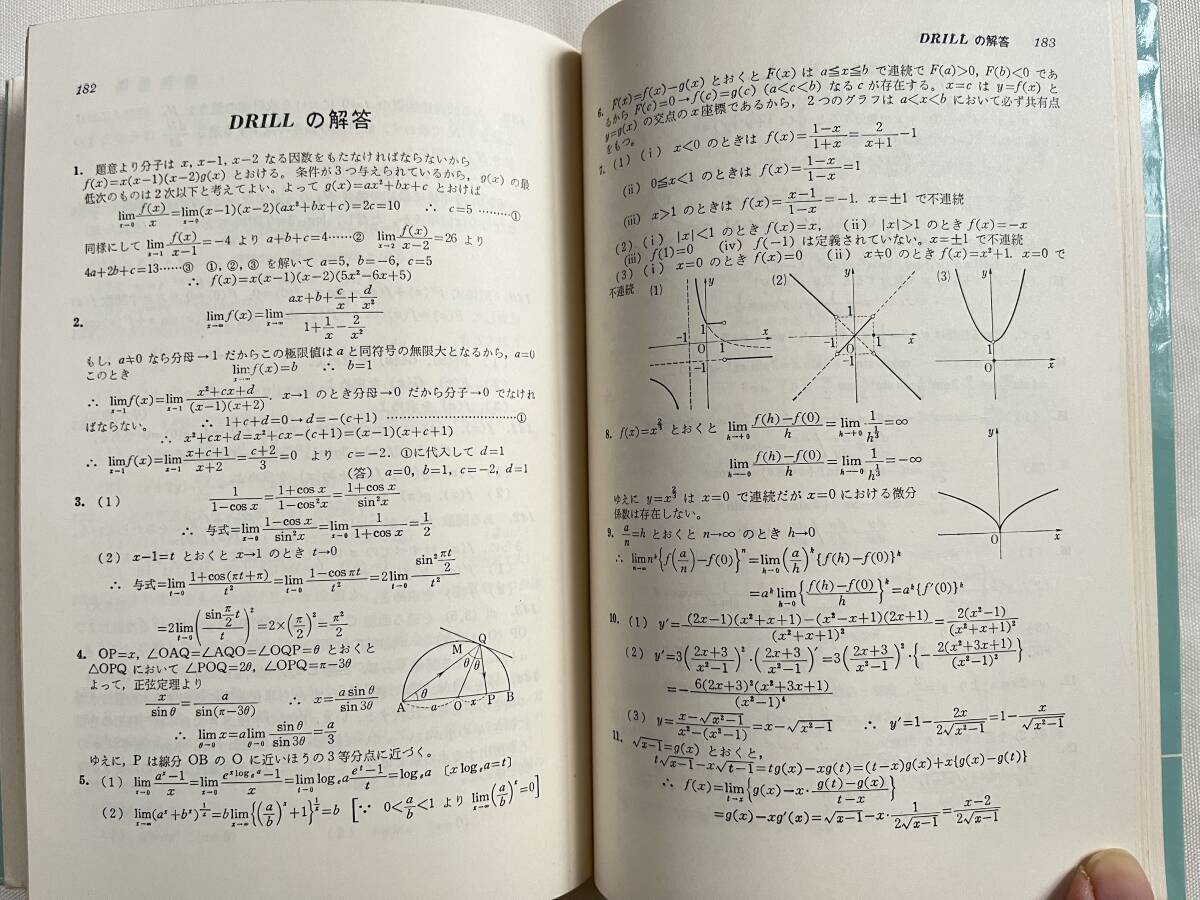 182
DRILL の解答
1. 題意より分子は x, x−1, x−2 なる因数をもたなければならないから
f(x)=x(x−1)(x−2)g(x) とおける. 条件が3つ与えられているから, g(x) の最
低次のものは2次以下と考えてよい. よって g(x)=ax²+bx+c とおけば
lim_{x→0} f(x)/x=lim_{x→0}(x−1)(x−2)(ax²+bx+c)=2c=10 ∴ c=5 ………①
同様にして lim_{x→1} f(x)/(x−1)=−4 より a+b+c=4……② lim_{x→2} f(x)/(x−2)=26 より
4a+2b+c=13……③ ①, ②, ③ を解いて a=5, b=−6, c=5
∴ f(x)=x(x−1)(x−2)(5x²−6x+5)
2. lim_{x→∞} f(x)=lim_{x→∞} (ax+b+c/x+d/x²)/(1+1/x−2/x²)
もし, a≠0 なら分母→1 だからこの極限値は a と同符号の無限大となるから, a=0
このとき lim_{x→∞} f(x)=b ∴ b=1
∴ lim_{x→1} f(x)=lim_{x→1} (x²+cx+d)/((x−1)(x+2)). x→1 のとき分母→0 だから分子→0 でなけれ
ばならない. ∴ 1+c+d=0→d=−(c+1) ………………………①
∴ x²+cx+d=x²+cx−(c+1)=(x−1)(x+c+1)
∴ lim_{x→1} f(x)=lim_{x→1} (x+c+1)/(x+2)=(c+2)/3=0 より c=−2. ①に代入して d=1
(答) a=0, b=1, c=−2, d=1
3. (1) 1/(1−cos x)=(1+cos x)/(1−cos²x)=(1+cos x)/sin²x
∴ 与式=lim_{x→0} (1−cos x)/sin²x=lim_{x→0} 1/(1+cos x)=1/2
(2) x−1=t とおくと x→1 のとき t→0
∴ 与式=lim_{t→0} (1+cos(πt+π))/t²=lim_{t→0} (1−cos πt)/t²=2lim_{t→0} (sin² πt/2)/t²
=2lim_{t→0} ((sin π/2 t)/t)²=2×(π/2)²=π²/2
4. OP=x, ∠OAQ=∠AQO=∠OQP=θ とおくと
△OPQ において ∠POQ=2θ, ∠OPQ=π−3θ
よって, 正弦定理より
x/sin θ=a/sin(π−3θ) ∴ x=a sin θ/sin 3θ
∴ lim_{θ→0} x=a lim_{θ→0} sin θ/sin 3θ=a/3
Q
M
θ θ
θ
A a O x P B
ゆえに, P は線分 OB の O に近いほうの3等分点に近づく.
5. (1) lim_{x→0} (a^x−1)/x=lim_{x→0} (e^{x log_e a}−1)/x=lim_{t→0} log_e a (e^t−1)/t=log_e a [x log_e a=t]
(2) lim_{x→∞}(a^x+b^x)^{1/x}=b lim_{x→∞}{(a/b)^x+1}^{1/x}=b [∵ 0<a/b<1 より lim_{x→∞}(a/b)^x=0]
DRILL の解答 183
6. F(x)=f(x)−g(x) とおくと F(x) は a≦x≦b で連続で F(a)>0, F(b)<0 であ
るから F(c)=0→f(c)=g(c) (a<c<b) なる c が存在する. x=c は y=f(x) と
y=g(x) の交点の x 座標であるから, 2つのグラフは a<x<b において必ず共有点
をもつ.
7. (1) (i) x<0 のときは f(x)=(1−x)/(1+x)=2/(x+1)−1
(ii) 0≦x<1 のときは f(x)=(1−x)/(1−x)=1
(iii) x>1 のときは f(x)=(x−1)/(1−x)=−1. x=±1 で不連続
(2) (i) |x|<1 のとき f(x)=x, (ii) |x|>1 のとき f(x)=−x
(iii) f(1)=0 (iv) f(−1) は定義されていない. x=±1 で不連続
(3) (i) x=0 のとき f(x)=0 (ii) x≠0 のとき f(x)=x²+1. x=0 で
不連続
(1) y 1 −1 0 1 x −1
(2) y 1 −1 0 1 x −1
(3) y 1 0 x
8. f(x)=x^{2/3} とおくと lim_{h→+0} (f(h)−f(0))/h=lim_{h→+0} 1/h^{1/3}=∞
lim_{h→−0} (f(h)−f(0))/h=lim_{h→−0} 1/h^{1/3}=−∞
ゆえに y=x^{2/3} は x=0 で連続だが x=0 における微分
係数は存在しない.
y 0 x
9. a/n=h とおくと n→∞ のとき h→0
∴ lim_{n→∞} n^k{f(a/n)−f(0)}^n=lim_{h→0}(a/h)^k{f(h)−f(0)}^k
=a^k lim_{h→0}{(f(h)−f(0))/h}^k=a^k{f′(0)}^k
10. (1) y′=((2x−1)(x²+x+1)−(x²−x+1)(2x+1))/(x²+x+1)²=2(x²−1)/(x²+x+1)²
(2) y′=3((2x+3)/(x²−1))²·((2x+3)/(x²−1))′=3((2x+3)/(x²−1))²·{−2(x²+3x+1)/(x²−1)²}
=−6(2x+3)²(x²+3x+1)/(x²−1)⁴
(3) y=(x−√(x²−1))/(x²−(x²−1))=x−√(x²−1) ∴ y′=1−2x/(2√(x²−1))=1−x/√(x²−1)
11. √(x−1)=g(x) とおくと,
t√(x−1)−x√(t−1)=tg(x)−xg(t)=(t−x)g(x)+x{g(x)−g(t)}
∴ f(x)=lim_{t→x}{g(x)−x·(g(t)−g(x))/(t−x)}
=g(x)−xg′(x)=√(x−1)−x·1/(2√(x−1))=(x−2)/(2√(x−1))